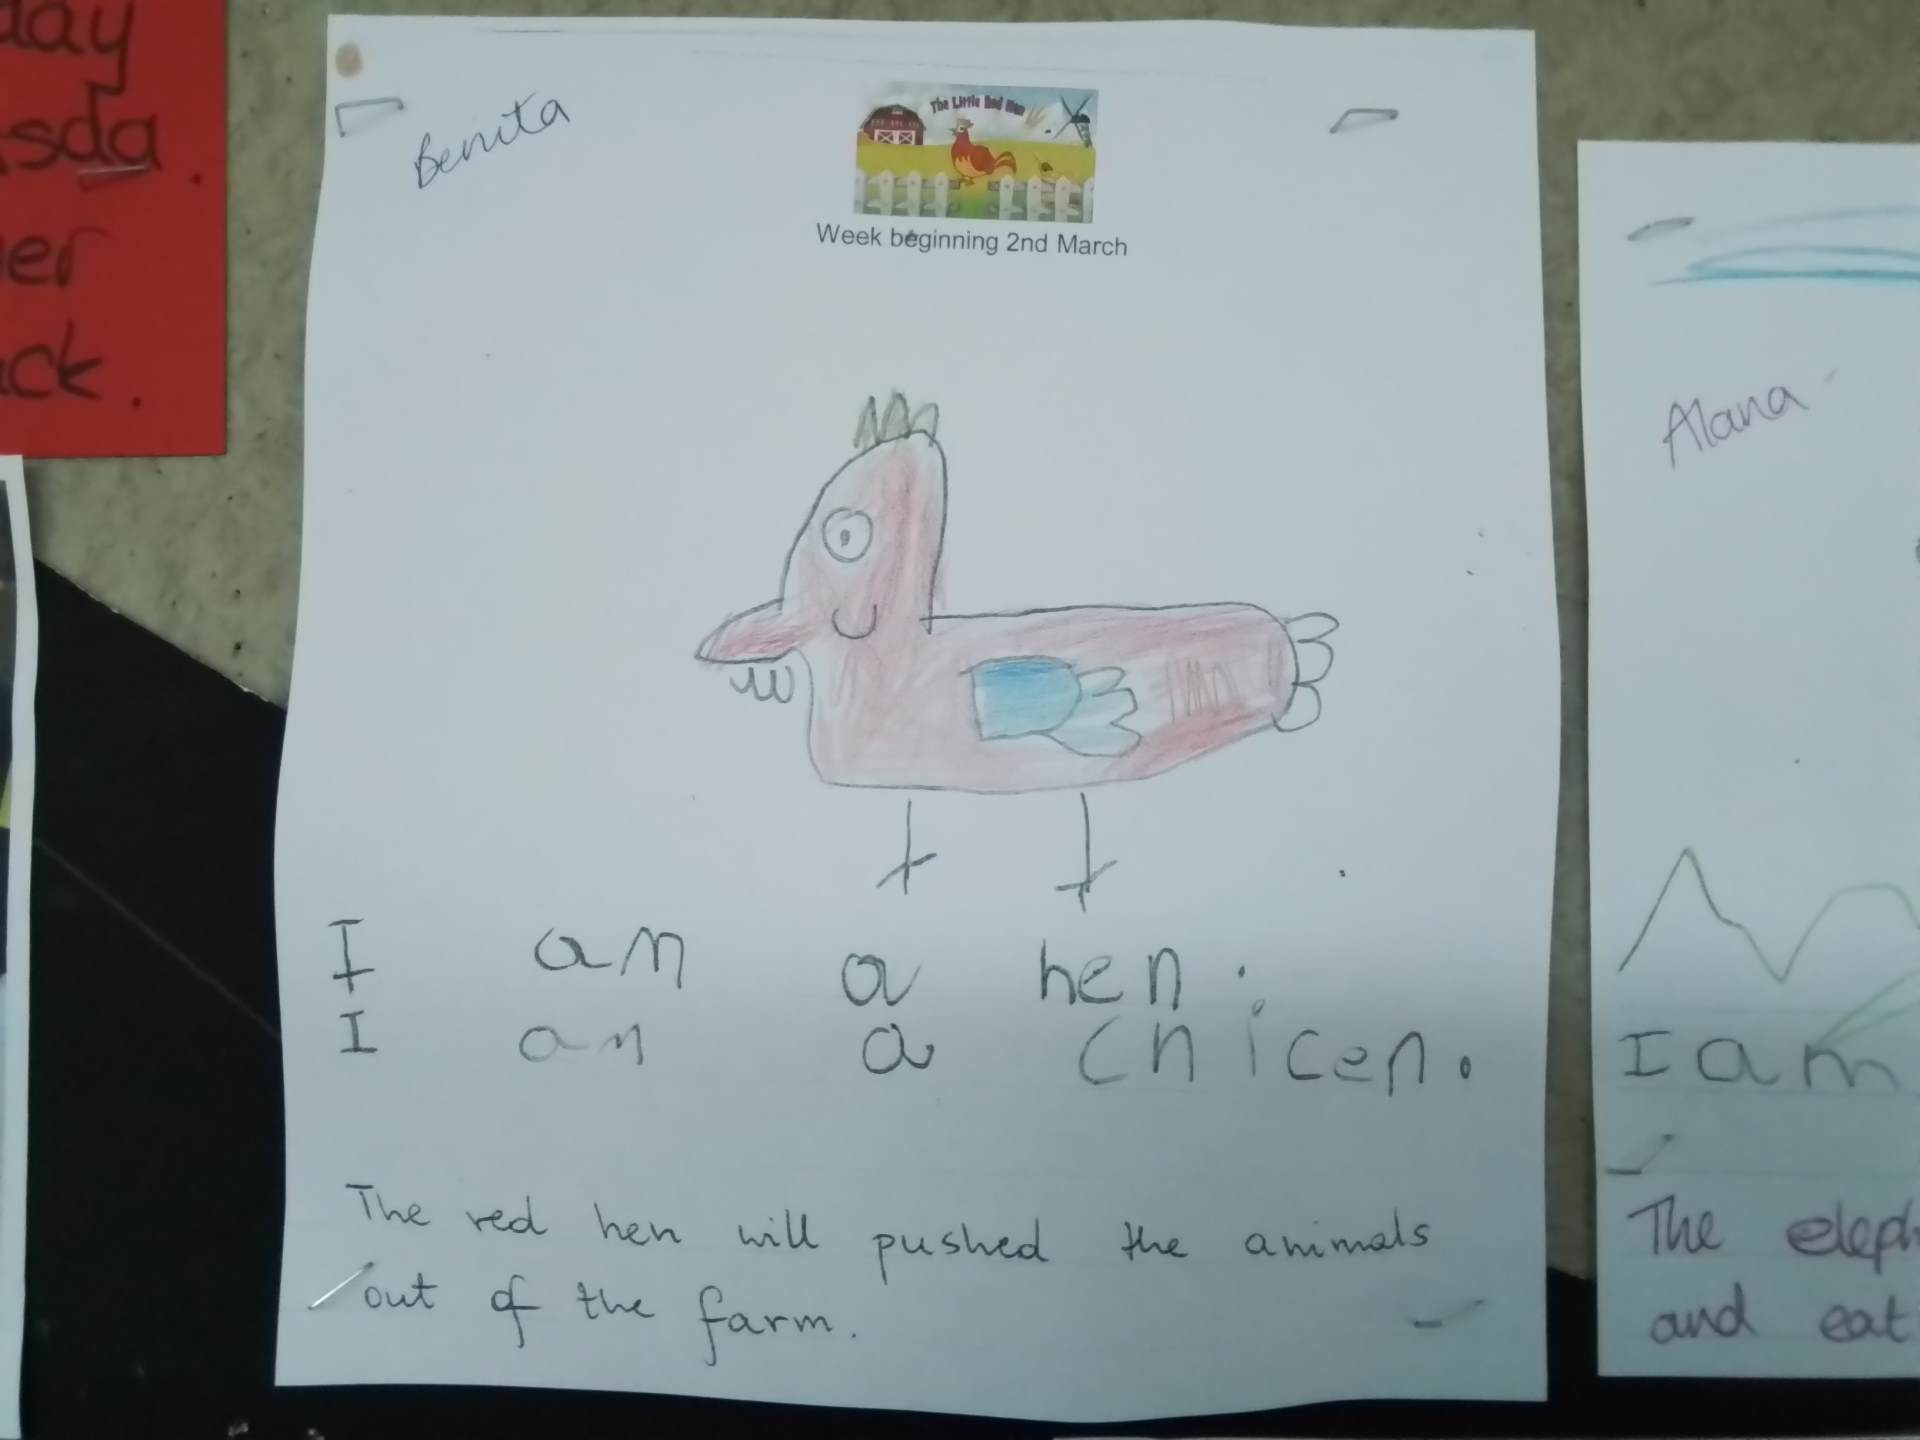 day
sda.
er
ck.
Benita
The Little Red Hen
Week beginning 2nd March
I am a hen.
I am a chicen.
The red hen will pushed the animals
out of the farm.
Alana
I am
The eleph
and eat